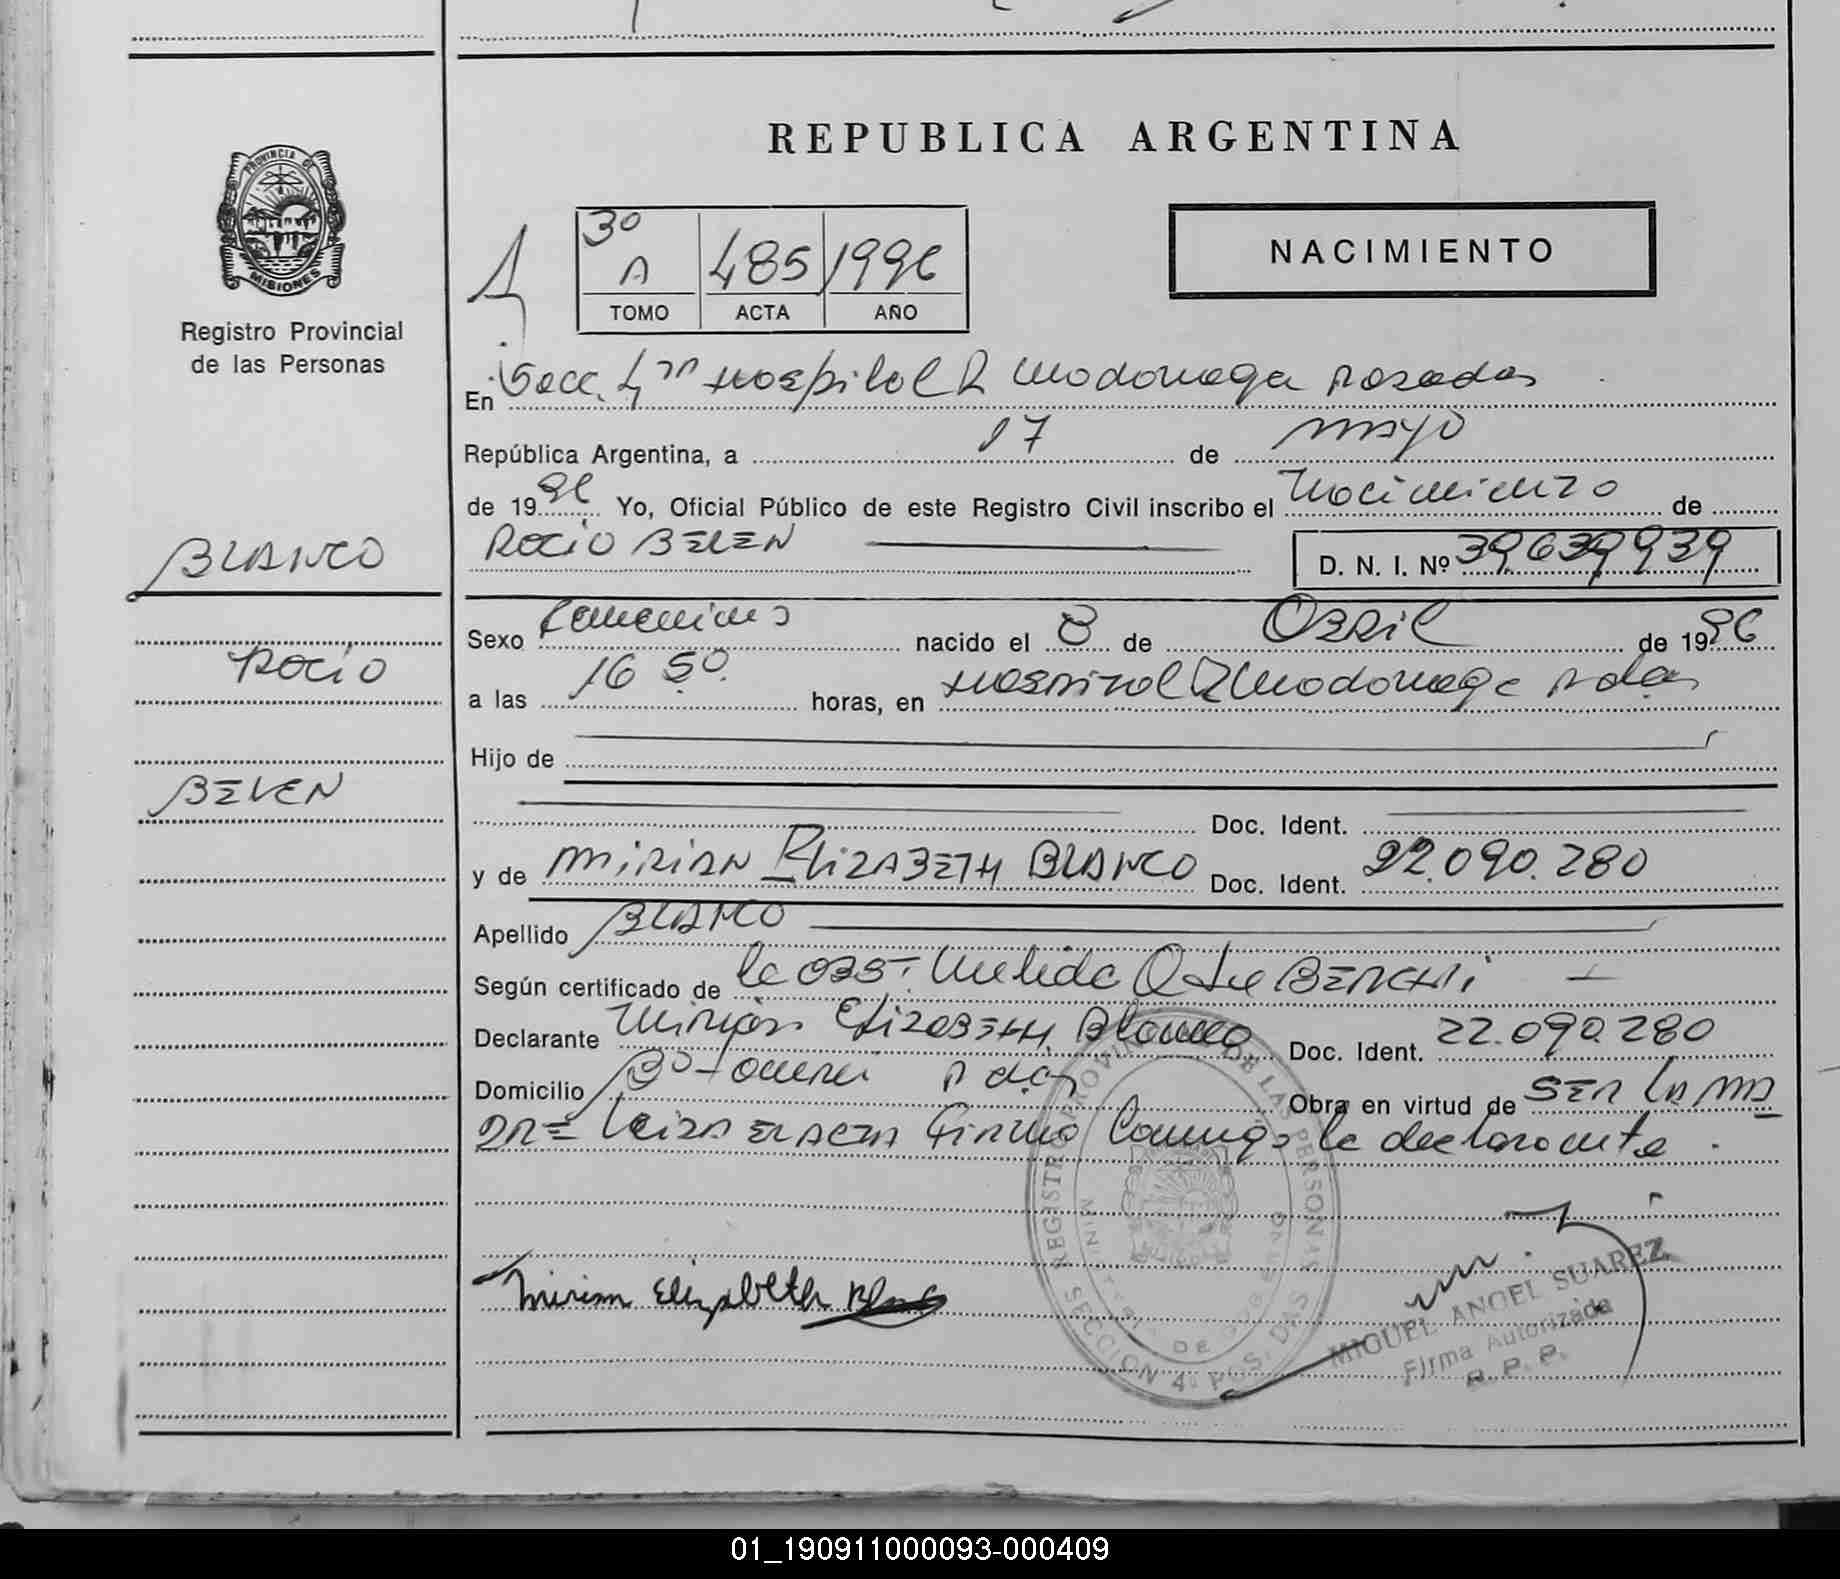 REPUBLICA ARGENTINA
PROVINCIA DE
MISIONES
Registro Provincial
de las Personas
3º
A 485 1996
TOMO ACTA AÑO
NACIMIENTO
En Secc. 4ta Hospital R Madariaga Posadas
República Argentina, a 17 de mayo
de 1996 Yo, Oficial Público de este Registro Civil inscribo el nacimiento de
ROCIO BELEN D. N. I. Nº 39639939
BLANCO
ROCIO
BELEN
Sexo Femenino nacido el 8 de Abril de 1996
a las 16 50 horas, en Hospital R Madariaga Pdas
Hijo de
Doc. Ident.
y de MIRIAN ELIZABETH BLANCO Doc. Ident. 22.090.280
Apellido BLANCO
Según certificado de la OBST. Nelida
Declarante Mirian Elizabeth Blanco Doc. Ident. 22.090.280
Domicilio Bº Pdas Obra en virtud de SER LA MA
DRE Leida el acta firma conmigo la declarante.
REGISTRO PROVINCIAL DE LAS PERSONAS
MINISTERIO DE GOBIERNO
SECCION 4ª POSADAS
Mirian Elizabeth Blanco
MIGUEL ANGEL SUAREZ
Firma Autorizada
R. P. P.
01_190911000093-000409